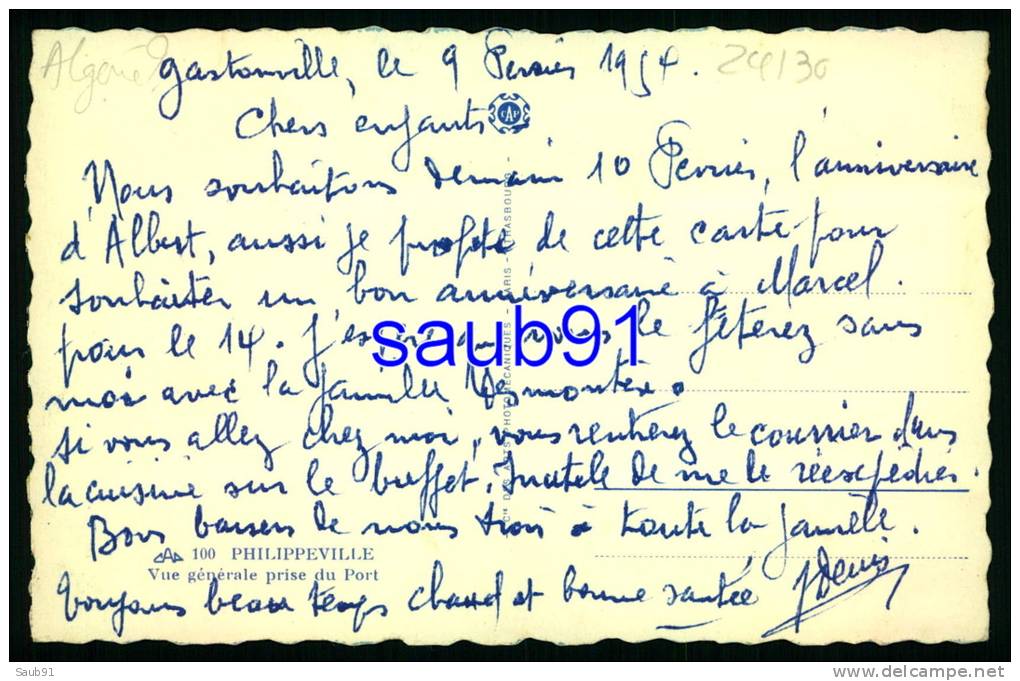 Algérie
24/30
Gastonville, le 9 Février 1954.
Chers enfants
CAP
Nous souhaitons demain 10 Février, l'anniversaire
d'Albert, aussi je profite de cette carte pour
souhaiter un bon anniversaire à Marcel.
pour le 14. J'espère que vous le fêterez sans
moi avec la famille
si vous allez chez moi, vous rentrerez le courrier dans
la cuisine sur le buffet, inutile de me le réexpédier.
Bons baisers de nous trois à toute la famille.
CAP 100 PHILIPPEVILLE
Vue générale prise du Port
Toujours beau temps chaud et bonne santée JDenis
Cie DES ARTS PHOTOMÉCANIQUES - PARIS - STRASBOURG -
saub91
Saub91
www.delcampe.net